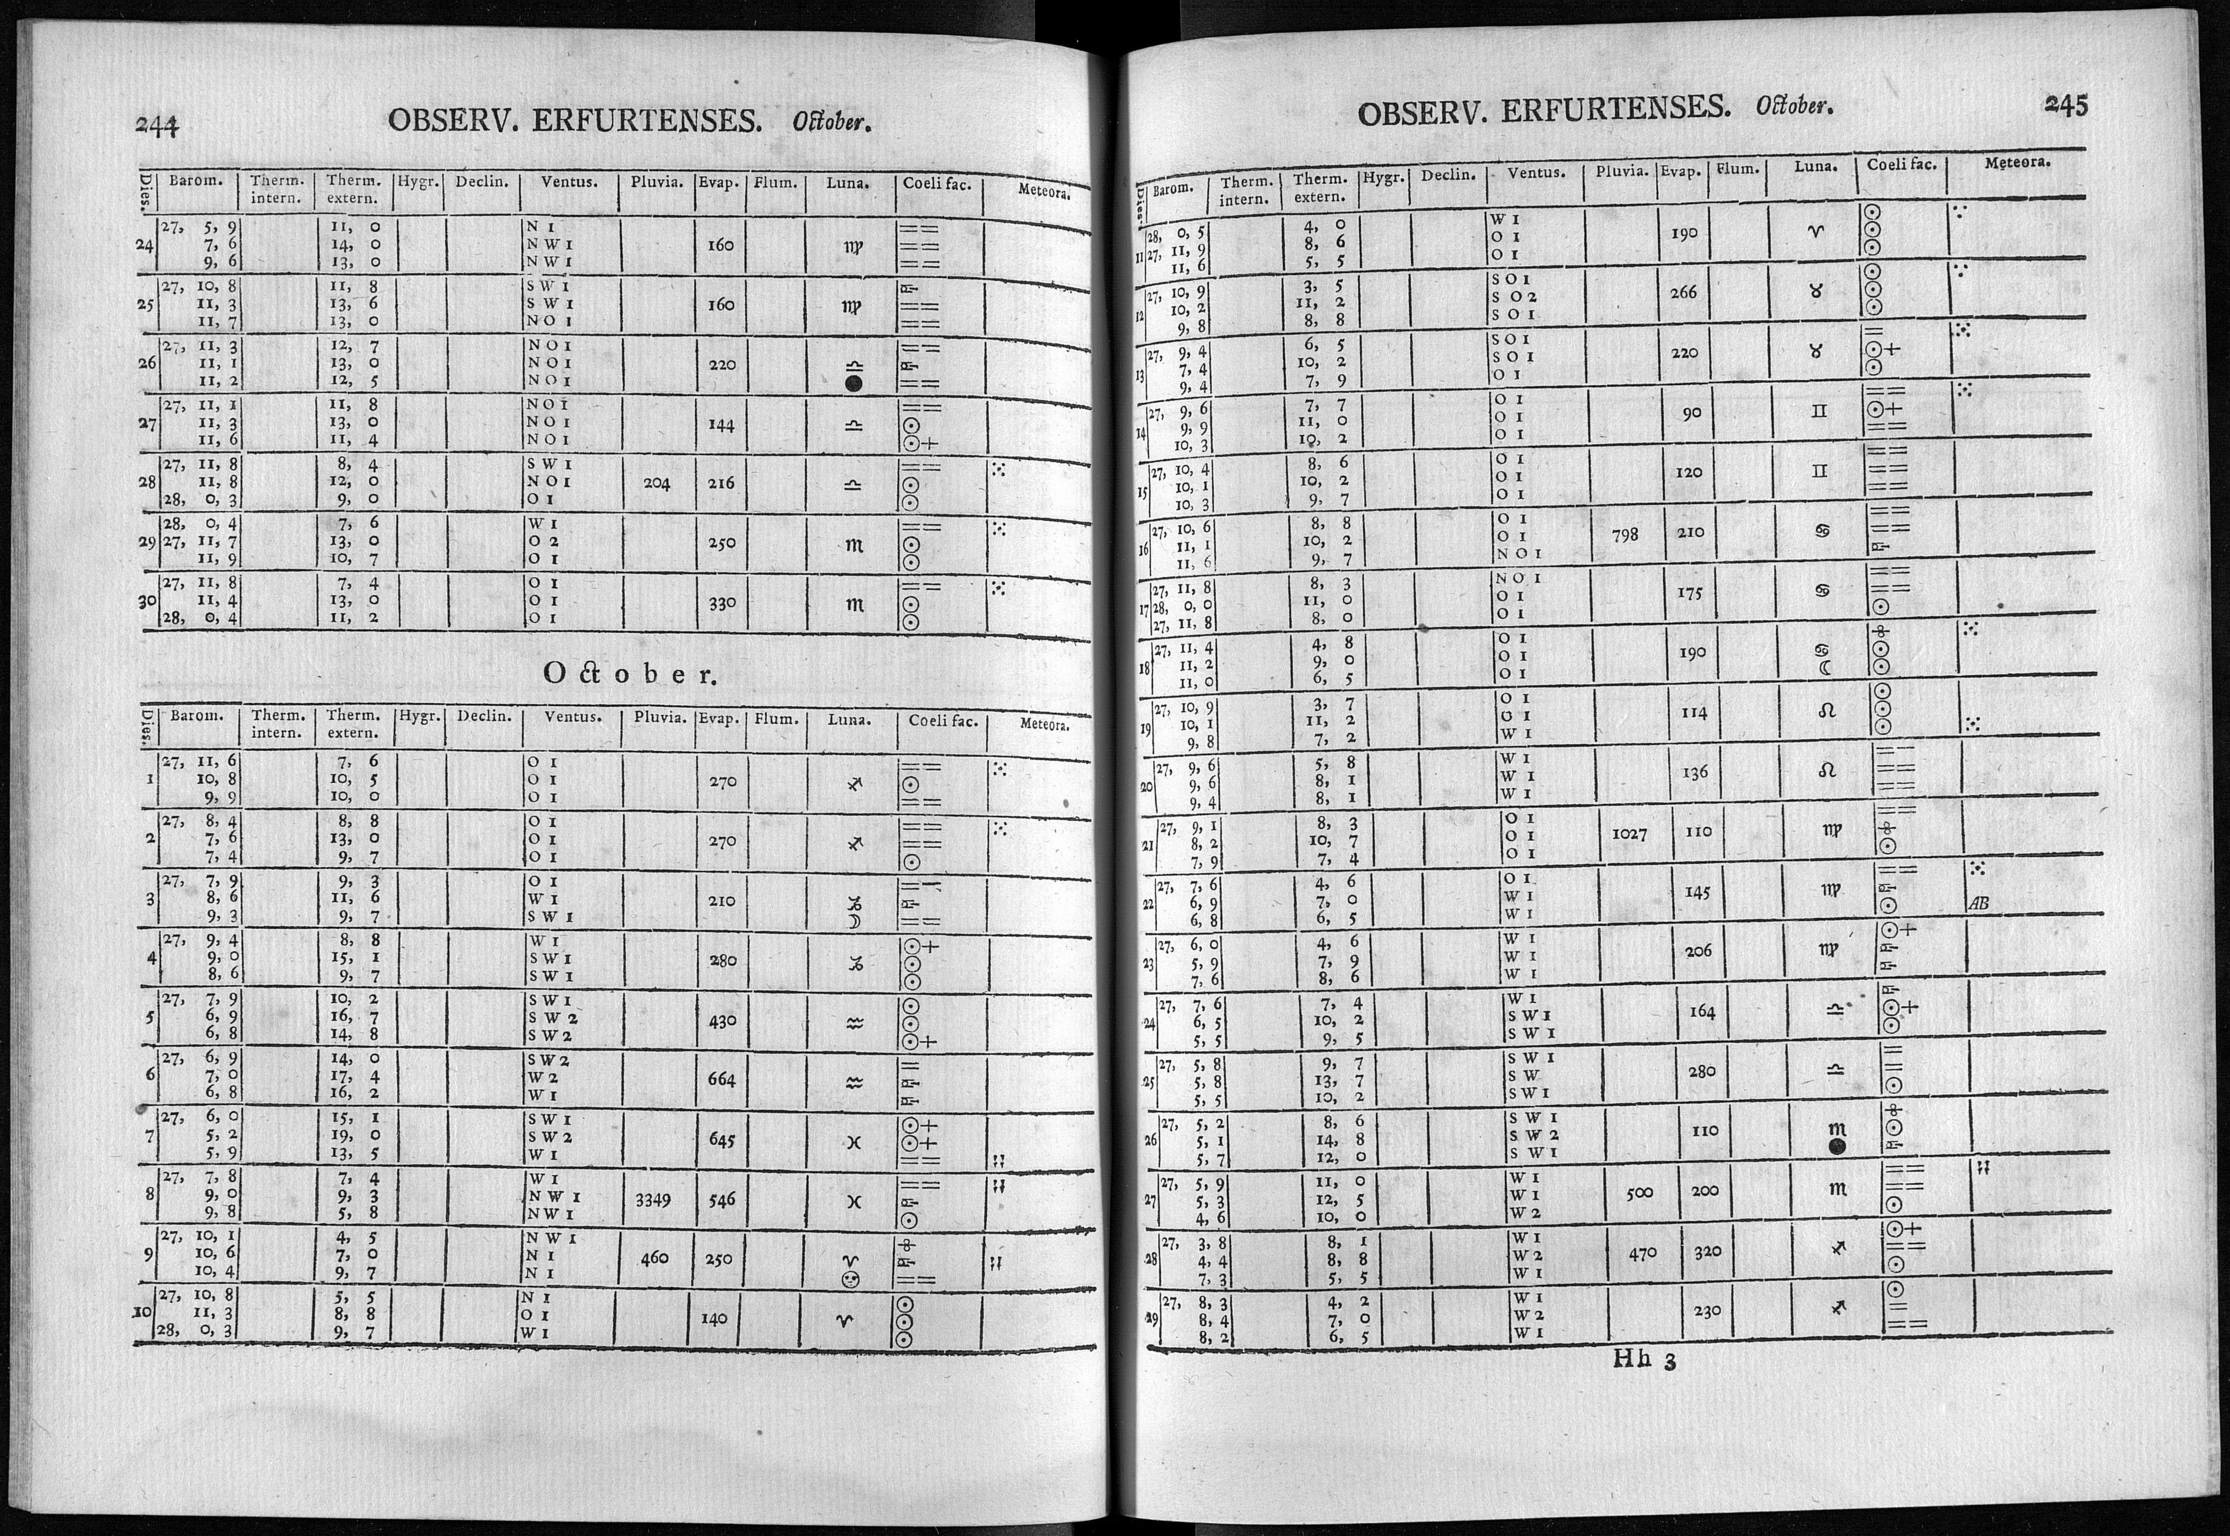 244 OBSERV. ERFURTENSES. October.
Dies. Barom. Therm. intern. Therm. extern. Hygr. Declin. Ventus. Pluvia. Evap. Flum. Luna. Coeli fac. Meteora.
27, 5, 9 11, 0 N 1 ==
24 7, 6 14, 0 N W 1 160 ♍ ==
9, 6 13, 0 N W 1 ==
27, 10, 8 11, 8 S W 1
25 11, 3 13, 6 S W 1 160 ♍ ==
11, 7 13, 0 N O 1 ==
27, 11, 3 12, 7 N O 1 ==
26 11, 1 13, 0 N O 1 220 ♎
11, 2 12, 5 N O 1 ● ==
27, 11, 1 11, 8 N O 1 ==
27 11, 3 13, 0 N O 1 144 ♎ ☉
11, 6 11, 4 N O 1 ☉+
27, 11, 8 8, 4 S W 1 == ⁙
28 11, 8 12, 0 N O 1 204 216 ♎ ☉
28, 0, 3 9, 0 O 1 ☉
28, 0, 4 7, 6 W 1 == ⁙
29 27, 11, 7 13, 0 O 2 250 ♏ ☉
11, 9 10, 7 O 1 ☉
27, 11, 8 7, 4 O 1 == ⁙
30 11, 4 13, 0 O 1 330 ♏ ☉
28, 0, 4 11, 2 O 1 ☉
October.
Dies. Barom. Therm. intern. Therm. extern. Hygr. Declin. Ventus. Pluvia. Evap. Flum. Luna. Coeli fac. Meteora.
27, 11, 6 7, 6 O 1 == ⁙
1 10, 8 10, 5 O 1 270 ♐ ☉
9, 9 10, 0 O 1 ==
27, 8, 4 8, 8 O 1 == ⁙
2 7, 6 13, 0 O 1 270 ♐ ==
7, 4 9, 7 O 1 ☉
27, 7, 9 9, 3 O 1 ==
3 8, 6 11, 6 W 1 210 ♑
9, 3 9, 7 S W 1 ☽ ==
27, 9, 4 8, 8 W 1 ☉+
4 9, 0 15, 1 S W 1 280 ♑ ☉
8, 6 9, 7 S W 1 ☉
27, 7, 9 10, 2 S W 1 ☉
5 6, 9 16, 7 S W 2 430 ♒ ☉
6, 8 14, 8 S W 2 ☉+
27, 6, 9 14, 0 S W 2 =
6 7, 0 17, 4 W 2 664 ♒
6, 8 16, 2 W 1
27, 6, 0 15, 1 S W 1 ☉+
7 5, 2 19, 0 S W 2 645 ♓ ☉+
5, 9 13, 5 W 1 ==
27, 7, 8 7, 4 W 1 ==
8 9, 0 9, 3 N W 1 3349 546 ♓
9, 8 5, 8 N W 1 ☉
27, 10, 1 4, 5 N W 1
9 10, 6 7, 0 N 1 460 250 ♈
10, 4 9, 7 N 1 ==
27, 10, 8 5, 5 N 1 ☉
10 11, 3 8, 8 O 1 140 ♈ ☉
28, 0, 3 9, 7 W 1 ☉
OBSERV. ERFURTENSES. October. 245
Dies. Barom. Therm. intern. Therm. extern. Hygr. Declin. Ventus. Pluvia. Evap. Flum. Luna. Coeli fac. Meteora.
28, 0, 5 4, 0 W 1 ☉
11 27, 11, 9 8, 6 O 1 190 ♈ ☉
11, 6 5, 5 O 1 ☉
27, 10, 9 3, 5 S O 1 ☉
12 10, 2 11, 2 S O 2 266 ♉ ☉
9, 8 8, 8 S O 1 ☉
27, 9, 4 6, 5 S O 1 = ⁙
13 7, 4 10, 2 S O 1 220 ♉ ☉+
9, 4 7, 9 O 1 ☉
27, 9, 6 7, 7 O 1 == ⁙
14 9, 9 11, 0 O 1 90 ♊ ☉+
10, 3 10, 2 O 1 ==
27, 10, 4 8, 6 O 1 ==
15 10, 1 10, 2 O 1 120 ♊ ==
10, 3 9, 7 O 1 ==
27, 10, 6 8, 8 O 1 ==
16 11, 1 10, 2 O 1 798 210 ♋ ==
11, 6 9, 7 N O 1
27, 11, 8 8, 3 N O 1 ==
17 28, 0, 0 11, 0 O 1 175 ♋ ==
27, 11, 8 8, 0 O 1 ☉
27, 11, 4 4, 8 O 1 ⁙
18 11, 2 9, 0 O 1 190 ♋ ☉
11, 0 6, 5 O 1 ☾ ☉
27, 10, 9 3, 7 O 1 ☉
19 10, 1 11, 2 O 1 114 ♌ ☉
9, 8 7, 2 W 1 ☉ ⁙
27, 9, 6 5, 8 W 1 ==
20 9, 6 8, 1 W 1 136 ♌ ==
9, 4 8, 1 W 1 ==
27, 9, 1 8, 3 O 1 ==
21 8, 2 10, 7 O 1 1027 110 ♍
7, 9 7, 4 O 1 ☉
27, 7, 6 4, 6 O 1 == ⁙
22 6, 9 7, 0 W 1 145 ♍
6, 8 6, 5 W 1 ☉ AB
27, 6, 0 4, 6 W 1 ☉+
23 5, 9 7, 9 W 1 206 ♍
7, 6 8, 6 W 1
27, 7, 6 7, 4 W 1
24 6, 5 10, 2 S W 1 164 ♎ ☉+
5, 5 9, 5 S W 1 ☉
27, 5, 8 9, 7 S W 1 =
25 5, 8 13, 7 S W 280 ♎ =
5, 5 10, 2 S W 1 ☉
27, 5, 2 8, 6 S W 1
26 5, 1 14, 8 S W 2 110 ♏ ☉
5, 7 12, 0 S W 1 ●
27, 5, 9 11, 0 W 1 ==
27 5, 3 12, 5 W 1 500 200 ♏ ==
4, 6 10, 0 W 2 ☉
27, 3, 8 8, 1 W 1 ☉+
28 4, 4 8, 8 W 2 470 320 ♐ ==
7, 3 5, 5 W 1 ☉
27, 8, 3 4, 2 W 1 ☉
29 8, 4 7, 0 W 2 230 ♐ =
8, 2 6, 5 W 1 ==
Hh 3